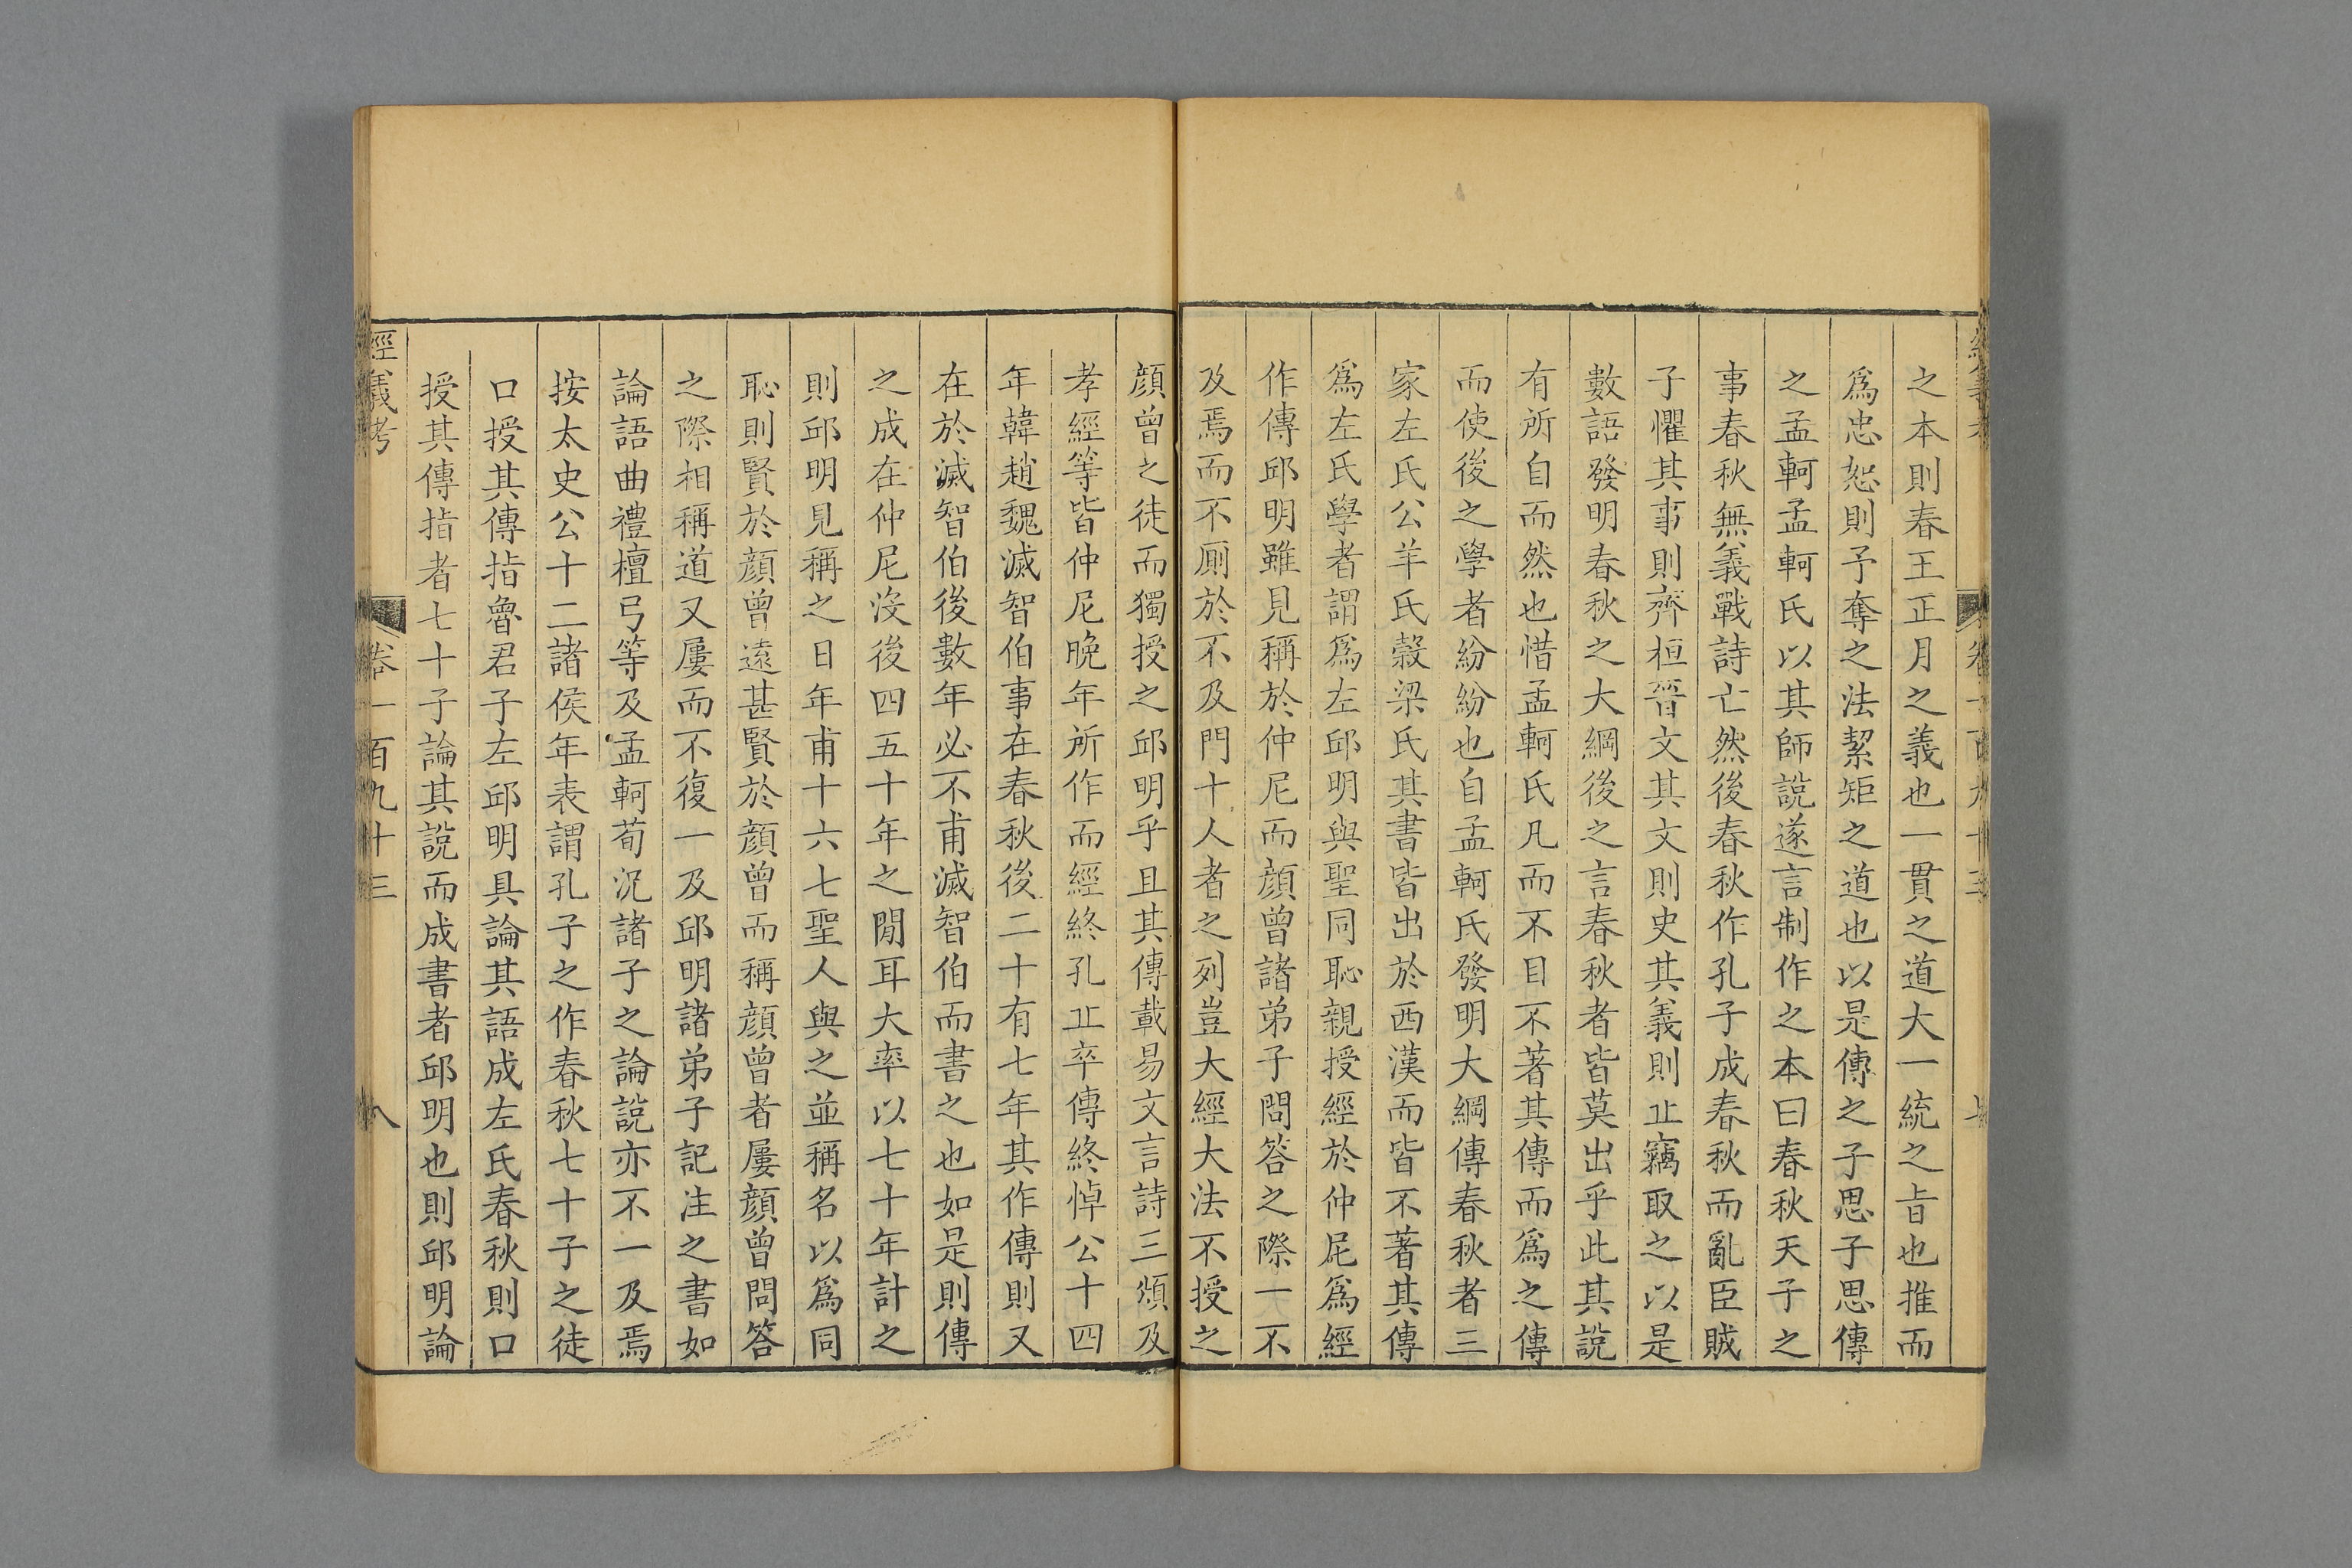 之本則春王正月之義也一貫之道大一統之旨也推而
爲忠恕則予奪之法絜矩之道也以是傳之子思子思傳
之孟軻孟軻氏以其師說遂言制作之本曰春秋天子之
事春秋無義戰詩亡然後春秋作孔子成春秋而亂臣賊
子懼其事則齊桓晉文其文則史其義則止竊取之以是
數語發明春秋之大綱後之言春秋者皆莫出乎此其說
有所自而然也惜孟軻氏凡而不目不著其傳而爲之傳
而使後之學者紛紛也自孟軻氏發明大綱傳春秋者三
家左氏公羊氏穀梁氏其書皆出於西漢而皆不著其傳
爲左氏學者謂爲左邱明與聖同恥親授經於仲尼爲經
作傳邱明雖見稱於仲尼而顔曾諸弟子問答之際一不
及焉而不厠於不及門十人者之列豈大經大法不授之
顔曾之徒而獨授之邱明乎且其傳載易文言詩三頌及
孝經等皆仲尼晚年所作而經終孔丘卒傳終悼公十四
年韓趙魏滅智伯事在春秋後二十有七年其作傳則又
在於滅智伯後數年必不甫滅智伯而書之也如是則傳
之成在仲尼沒後四五十年之閒耳大率以七十年計之
則邱明見稱之日年甫十六七聖人與之並稱名以爲同
恥則賢於顔曾遠甚賢於顔曾而稱顔曾者屢顔曾問答
之際相稱道又屢而不復一及邱明諸弟子記注之書如
論語曲禮檀弓等及孟軻荀況諸子之論說亦不一及焉
按太史公十二諸侯年表謂孔子之作春秋七十子之徒
口授其傳指魯君子左邱明具論其語成左氏春秋則口
授其傳指者七十子論其說而成書者邱明也則邱明論
經義考 卷一百九十三 八